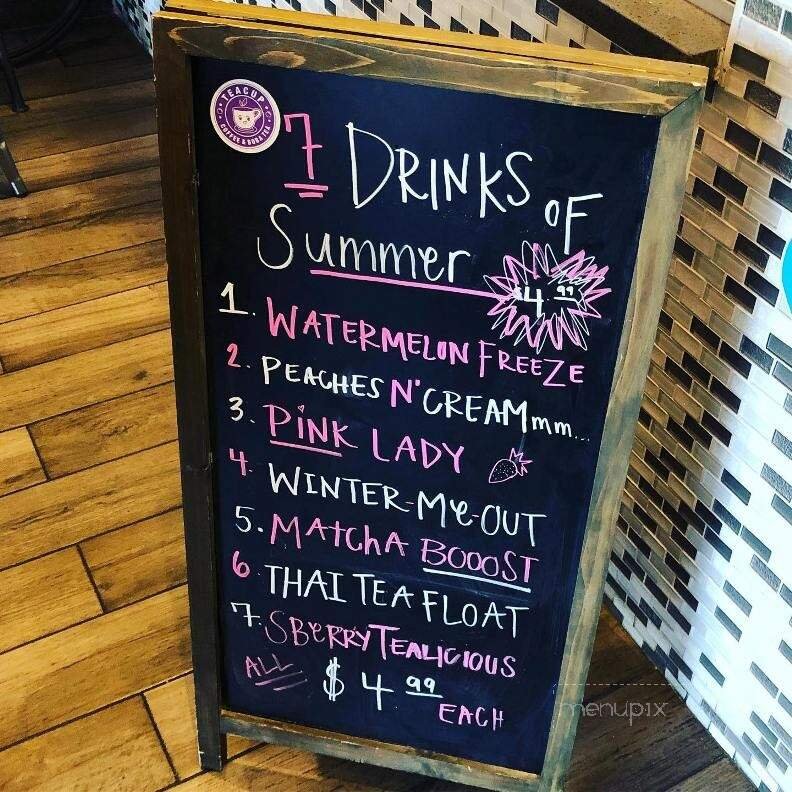 TEACUP
COFFEE & BOBA TEA
7 DRINKS OF
Summer
$4.99
1. WATERMELON FREEZE
2. PEACHES N' CREAMmm...
3. PiNK LADY
4. WINTER-Me-OUT
5. MAtchA BOOOST
6 THAI TEA FLOAT
7. SBerry TEALICIOUS
ALL $4.99
EACH
menupix